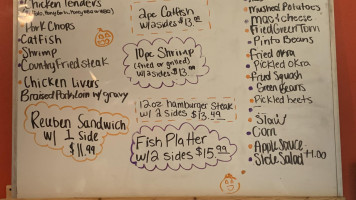 Chicken Tenders
Pork Chops
CatFish
Shrimp
Country Fried steak
Chicken Livers
Braised Pork Loin w/ gravy
Reuben Sandwich
w/ 1 side
$11.99
2pc Catfish
w/ 2 sides $13.
10pc Shrimp
(fried or grilled)
w/ 2 sides $13.
12oz hamburger steak
w/ 2 sides $13.49
Fish Platter
w/ 2 sides $15.99
Mashed Potatoes
Mac & cheese
Fried Green Tom
Pinto Beans
Fried Okra
Pickled Okra
Fried Squash
Green Beans
Pickled beets
Slaw
Corn
Apple Sauce
Side Salad +1.00